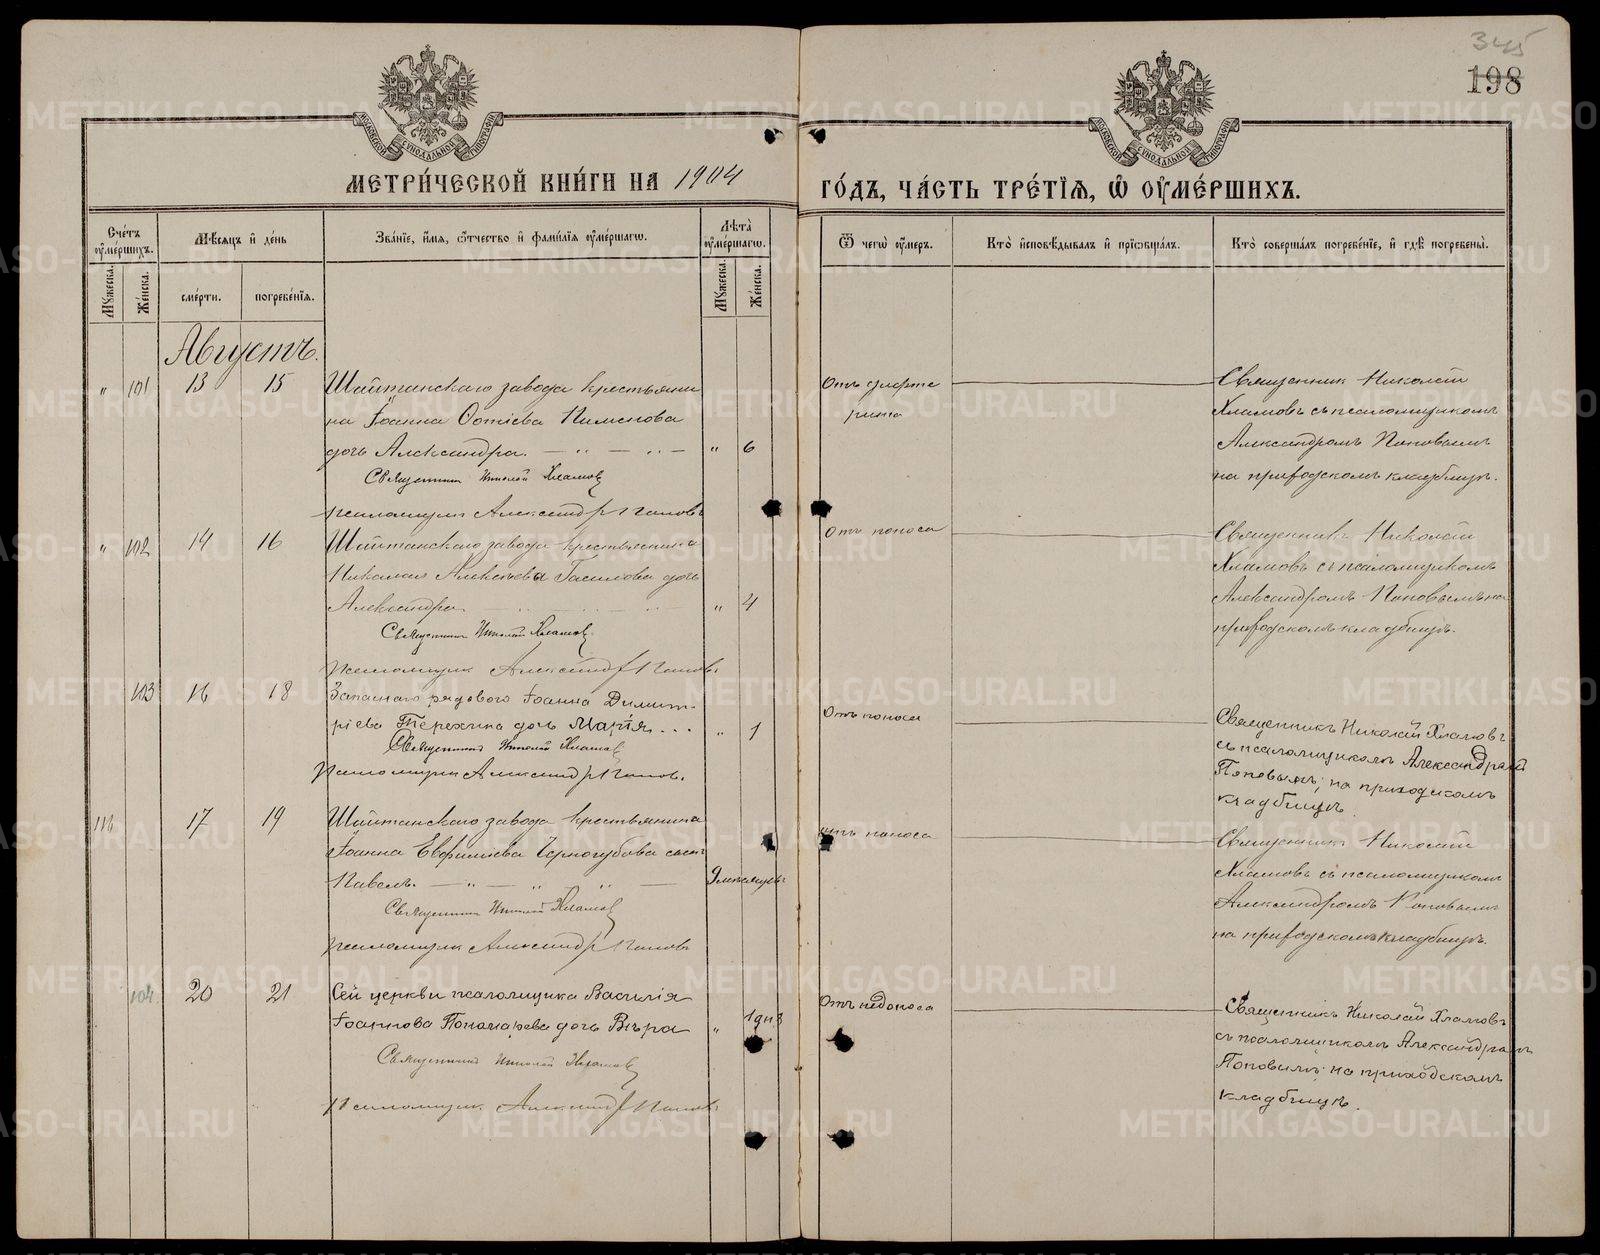 345
198
МОСКОВСКОЙ СѴНОДАЛЬНОЙ ТИПОГРАФІИ
МОСКОВСКОЙ СѴНОДАЛЬНОЙ ТИПОГРАФІИ
МЕТРИ́ЧЕСКОЙ КНИ́ГИ НА 1904
ГО́ДЪ, ЧА́СТЬ ТРЕ́ТЇѦ, Ѡ҆ ОУ҆МЕ́РШИХЪ.
Сче́тъ оу҆ме́ршихъ.
Мꙋжеска.
Же́нска.
Мѣ́сѧцъ и҆ де́нь
сме́рти.
погребе́нїѧ.
Зва́нїе, и҆́мѧ, ѻ҆́тчество и҆ фами́лїѧ оу҆ме́ршагѡ.
Лѣ́та оу҆ме́ршагѡ.
Мꙋжеска.
Же́нска.
Ѿ чегѡ̀ оу҆́меръ.
Кто̀ и҆сповѣ́дывалъ и҆ прїѡбща́лъ.
Кто̀ соверша́лъ погребе́нїе, и҆ гдѣ̀ погребены̀.
Августъ.
" 101 13 15 Шайтанскаго завода крестьяни
на Іоанна Фотіева Пименова
дочь Александра. — " — " — " 6
Священник Николай Хламов
псаломщик Александр Попов
Отъ дифте
рита
Священник Николай
Хламовъ съ псаломщикомъ
Александромъ Поповымъ
на приходскомъ кладбищѣ.
" 102 14 16 Шайтанскаго завода крестьянина
Николая Алексѣева Гасилова дочь
Александра " 4
Священник Николай Хламов
псаломщик Александр Попов
Отъ поноса
Священникъ Николай
Хламовъ съ псаломщикомъ
Александромъ Поповымъ на
приходскомъ кладбищѣ.
103 16 18 Запаснаго рядового Іоанна Димит-
ріева Терехина дочь Марія... " 1
Священник Николай Хламов
псаломщик Александр Попов.
Отъ поноса
Священникъ Николай Хламовъ
съ псаломщикомъ Александромъ
Поповымъ; на приходскомъ
кладбищѣ.
116 17 19 Шайтанскаго завода крестьянина
Іоанна Евфиміева Черногубова сынъ
Павелъ. — " — " — " — 9 мѣсяцевъ
Священник Николай Хламов
псаломщик Александр Попов
Отъ поноса
Священникъ Николай
Хламовъ съ псаломщикомъ
Александромъ Поповымъ
на приходскомъ кладбищѣ.
104 20 21 Сей церкви псаломщика Василія
Іоаннова Пономарева дочь Вѣра " 1 дня
Священник Николай Хламов
псаломщик Александр Попов
Отъ недоноса
Священникъ Николай Хламовъ
съ псаломщикомъ Александромъ
Поповымъ; на приходскомъ
кладбищѣ.
METRIKI.GASO-URAL.RU